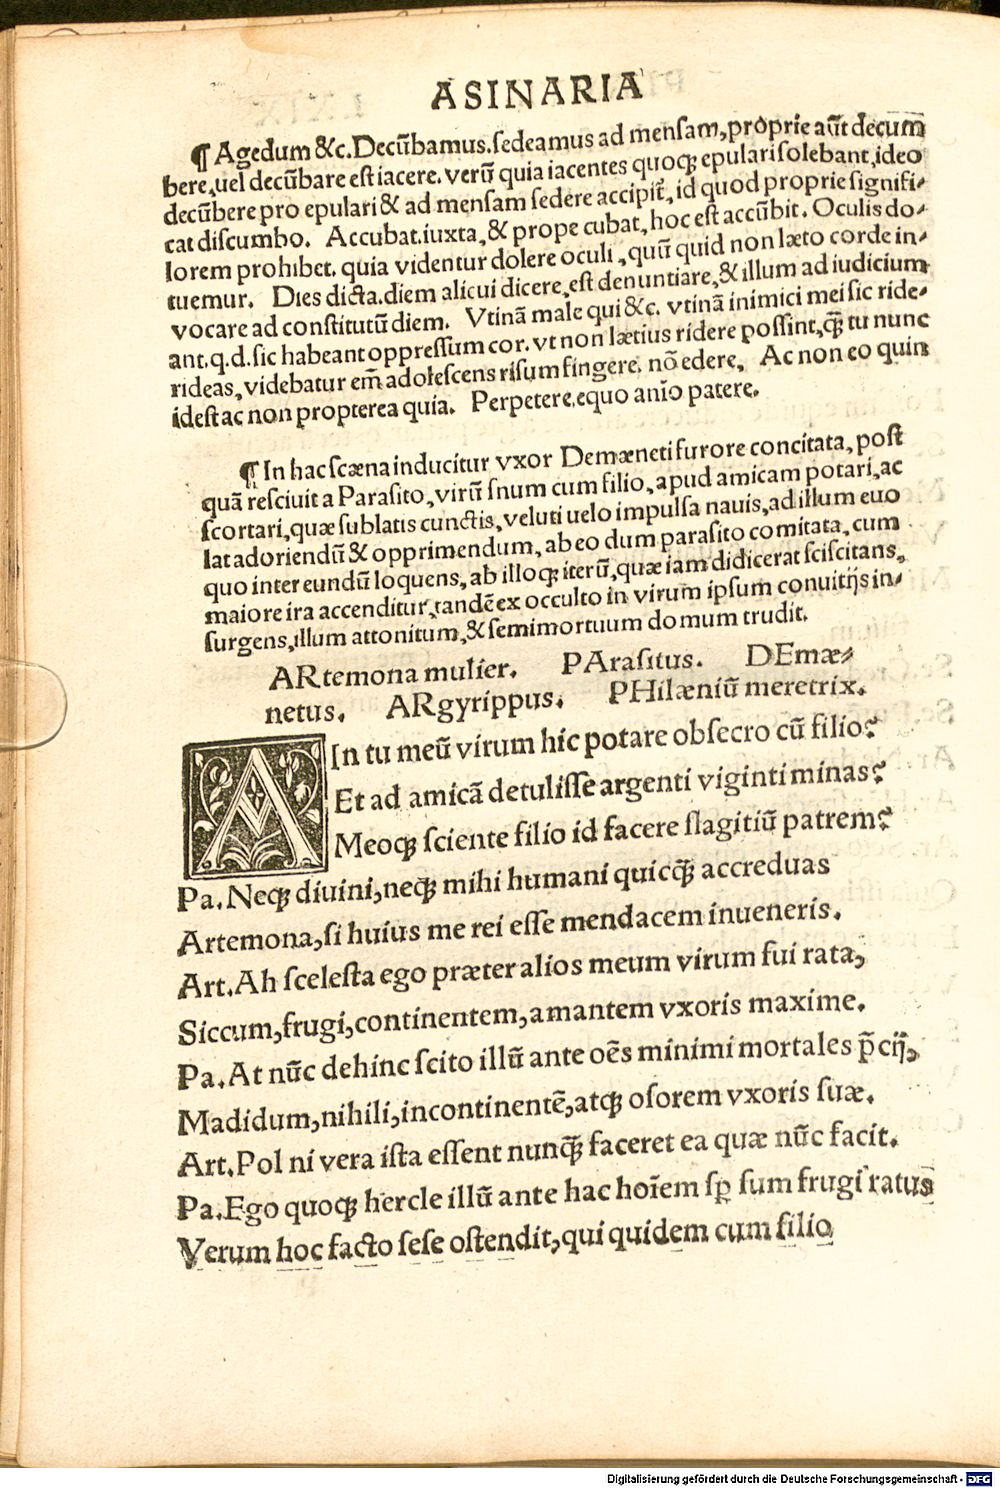 ASINARIA
¶ Agedum &c. Decūbamus. sedeamus ad mensam, proprie aūt decum
bere, uel decūbare est iacere. verū quia iacentes quoqꝫ epulari solebant, ideo
decūbere pro epulari & ad mensam sedere accipit̄, id quod proprie signifi-
cat discumbo. Accubat. iuxta, & prope cubat, hoc est accūbit. Oculis do-
lorem prohibet. quia videntur dolere oculi, quū quid non læto corde in-
tuemur. Dies dicta. diem alicui dicere, est denuntiare, & illum ad iudicium
vocare ad constitutū diem. Vtinā male qui &c. vtinā inimici mei sic ride-
ant. q. d. sic habeant oppressum cor. vt non lætius ridere possint, q̄ꝫ tu nunc
rideas, videbatur em̄ adolescens risum fingere. nō edere, Ac non eo quin
idest ac non propterea quia. Perpetere. equo anīo patere.
¶ In hac scæna inducitur vxor Demæneti furore concitata, post
quā resciuit a Parasito, virū snum cum filio, apud amicam potari, ac
scortari, quæ sublatis cunctis, veluti uelo impulsa nauis, ad illum euo
lat adoriendū & opprimendum, ab eo dum parasito comitata, cum
quo inter eundū loquens, ab illoqꝫ iterū, quæ iam didicerat sciscitans,
maiore ira accenditur, tandē ex occulto in virum ipsum conuitijs in-
surgens, illum attonitum, & semimortuum domum trudit.
ARtemona mulier. PArasitus. DEmæ-
netus. ARgyrippus. PHilæniū meretrix.
AIn tu meū virum hic potare obsecro cū filio?
Et ad amicā detulisse argenti viginti minas?
Meoqꝫ sciente filio id facere flagitiū patrem?
Pa. Neqꝫ diuini, neqꝫ mihi humani quicq̄ꝫ accreduas
Artemona, si huius me rei esse mendacem inueneris.
Art. Ah scelesta ego præter alios meum virum fui rata,
Siccum, frugi, continentem, amantem vxoris maxime.
Pa. At nūc dehinc scito illū ante oēs minimi mortales p̄cij,
Madidum, nihili, incontinentē, atqꝫ osorem vxoris suæ.
Art. Pol ni vera ista essent nunq̄ꝫ faceret ea quæ nūc facit.
Pa. Ego quoqꝫ hercle illū ante hac hoīem sꝑ sum frugi ratus
Verum hoc facto sese ostendit, qui quidem cum filio
Digitalisierung gefördert durch die Deutsche Forschungsgemeinschaft - DFG